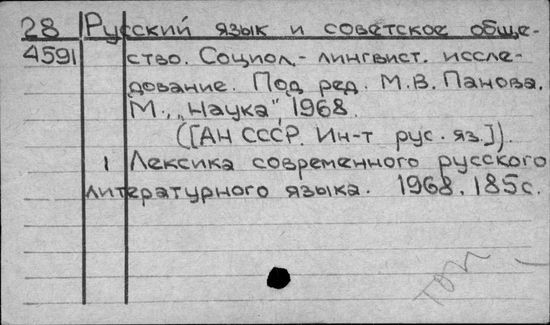 28 Русский язык и советское обще-
4591 ство. Социол.- лингвист. иссле-
дование. Под ред. М.В. Панова.
М., „Наука", 1968.
([АН СССР. Ин-т рус. яз.]).
1 Лексика современного русского
литературного языка. 1968. 185с.
том